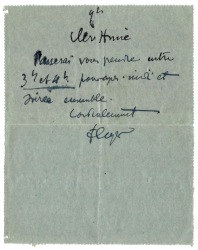 Cher Ami
Passerai vous prendre entre
3h et 4h pour après-midi et
soirée ensemble.
Cordialement